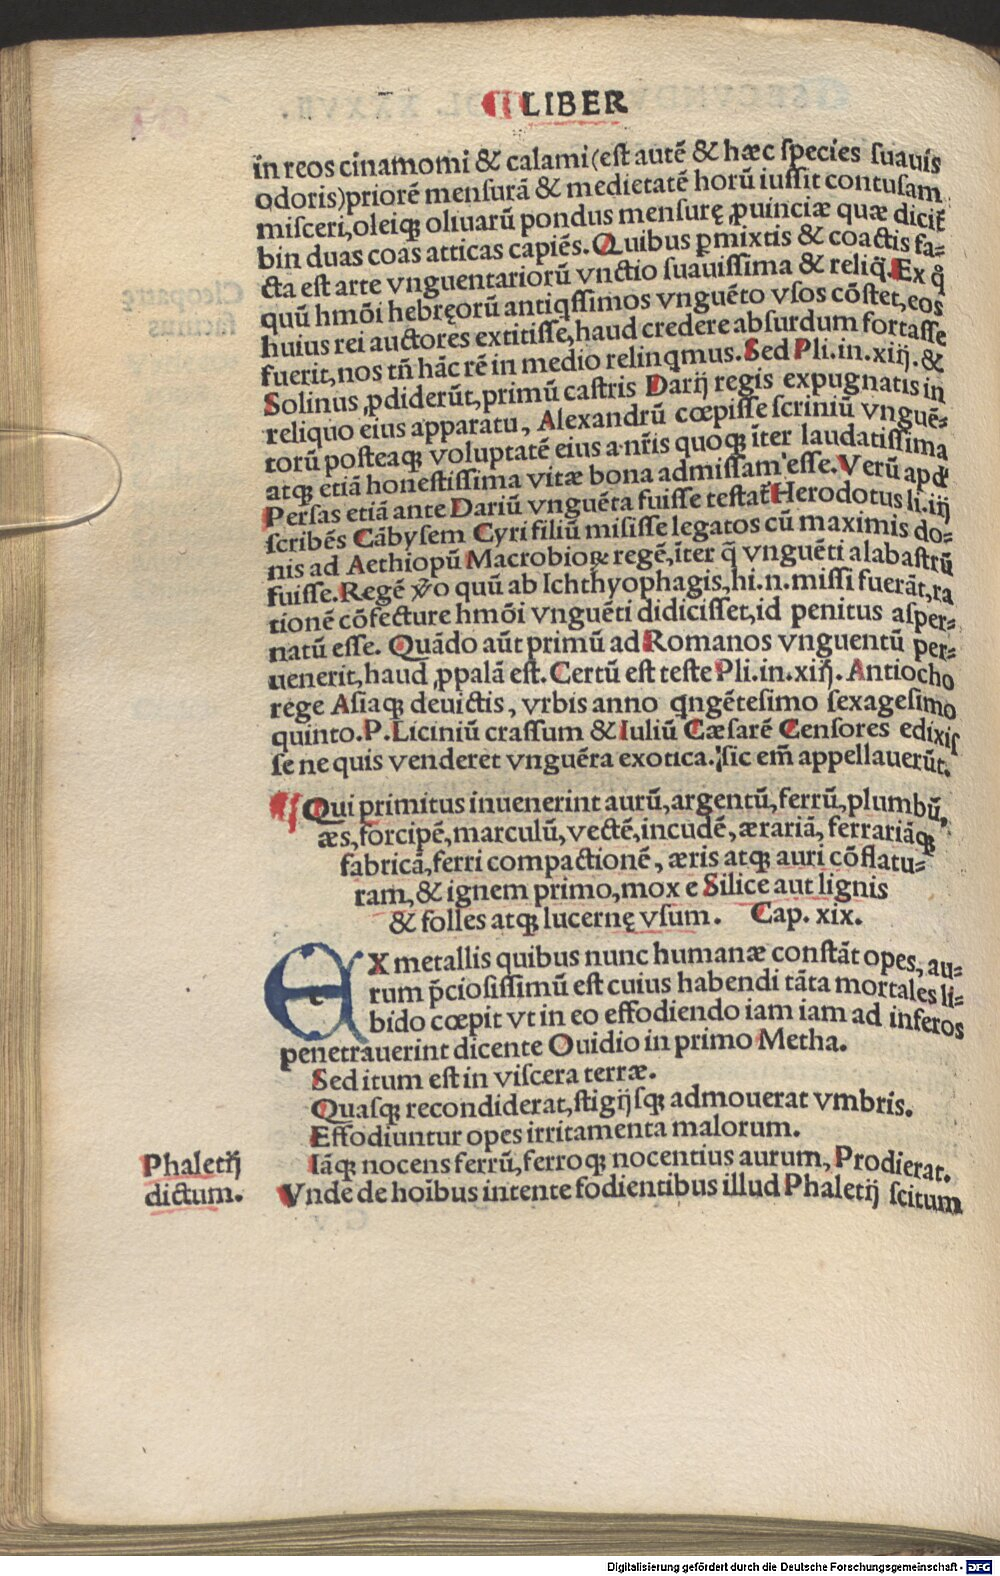 LIBER
in reos cinamomi & calami (est autē & hæc species suauis
odoris) priorē mensurā & medietatē horū iussit contusam
misceri, oleiqꝫ oliuarū pondus mensurę ꝓuinciæ quæ dicit᷑
bin duas coas atticas capiēs. Quibus ꝑmixtis & coactis fa⸗
cta est arte vnguentariorū vnctio suauissima & reliq̄. Ex q̊
quū hmōi hebręorū antiqssimos vnguēto vsos cōstet, eos
huius rei auctores extitisse, haud credere absurdum fortasse
fuerit, nos tn̄ hāc rē in medio relinqmus. Sed Pli. in. xiij. &
Solinus ꝓdiderūt, primū castris Darij regis expugnatis in
reliquo eius apparatu, Alexandrū cœpisse scriniū vnguē⸗
torū posteaqꝫ voluptatē eius a nr̄is quoqꝫ īter laudatissima
atqꝫ etiā honestissima vitæ bona admissam esse. Verū apd'
Persas etiā ante Dariū vnguēta fuisse testat᷑ Herodotus li. iij
scribēs Cābysem Cyri filiū misisse legatos cū maximis do⸗
nis ad Aethiopū Macrobioꝝ regē, īter q̄ vnguēti alabastrū
fuisse. Regē v̊o quū ab Ichthyophagis, hi. n. missi fuerāt, ra
tionē cōfecture hmōi vnguēti didicisset, id penitus asper⸗
natū esse. Quādo aūt primū ad Romanos vnguentū per⸗
uenerit, haud ꝓpalā est. Certū est teste Pli. in. xiij. Antiocho
rege Asiaqꝫ deuictis, vrbis anno qngētesimo sexagesimo
quinto. P. Liciniū crassum & Iuliū Cæsarē Censores edixis
se ne quis venderet vnguēta exotica. sic em̄ appellauerūt.
¶ Qui primitus inuenerint aurū, argentū, ferrū, plumbū,
æs, forcipē, marculū, vectē, incudē, ærariā, ferrariāqꝫ
fabricā, ferri compactionē, æris atqꝫ auri cōflatu⸗
ram, & ignem primo, mox e Silice aut lignis
& folles atqꝫ lucernę vsum. Cap. xix.
EX metallis quibus nunc humanæ constāt opes, au⸗
rum p̄ciosissimū est cuius habendi tāta mortales li⸗
bido cœpit vt in eo effodiendo iam iam ad inferos
penetrauerint dicente Ouidio in primo Metha.
Sed itum est in viscera terræ.
Quasqꝫ recondiderat, stigijsqꝫ admouerat vmbris.
Effodiuntur opes irritamenta malorum.
Iāqꝫ nocens ferrū, ferroqꝫ nocentius aurum, Prodierat.
Vnde de hoībus intente fodientibus illud Phaletij scitum
Phaletij
dictum.
Digitalisierung gefördert durch die Deutsche Forschungsgemeinschaft - DFG